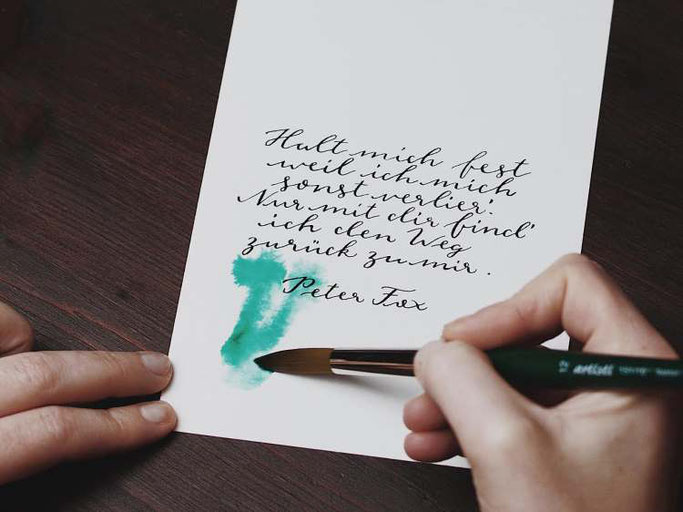 Halt mich fest
weil ich mich
sonst verlier'.
Nur mit dir find'
ich den Weg
zurück zu mir.
Peter Fox
12 artists